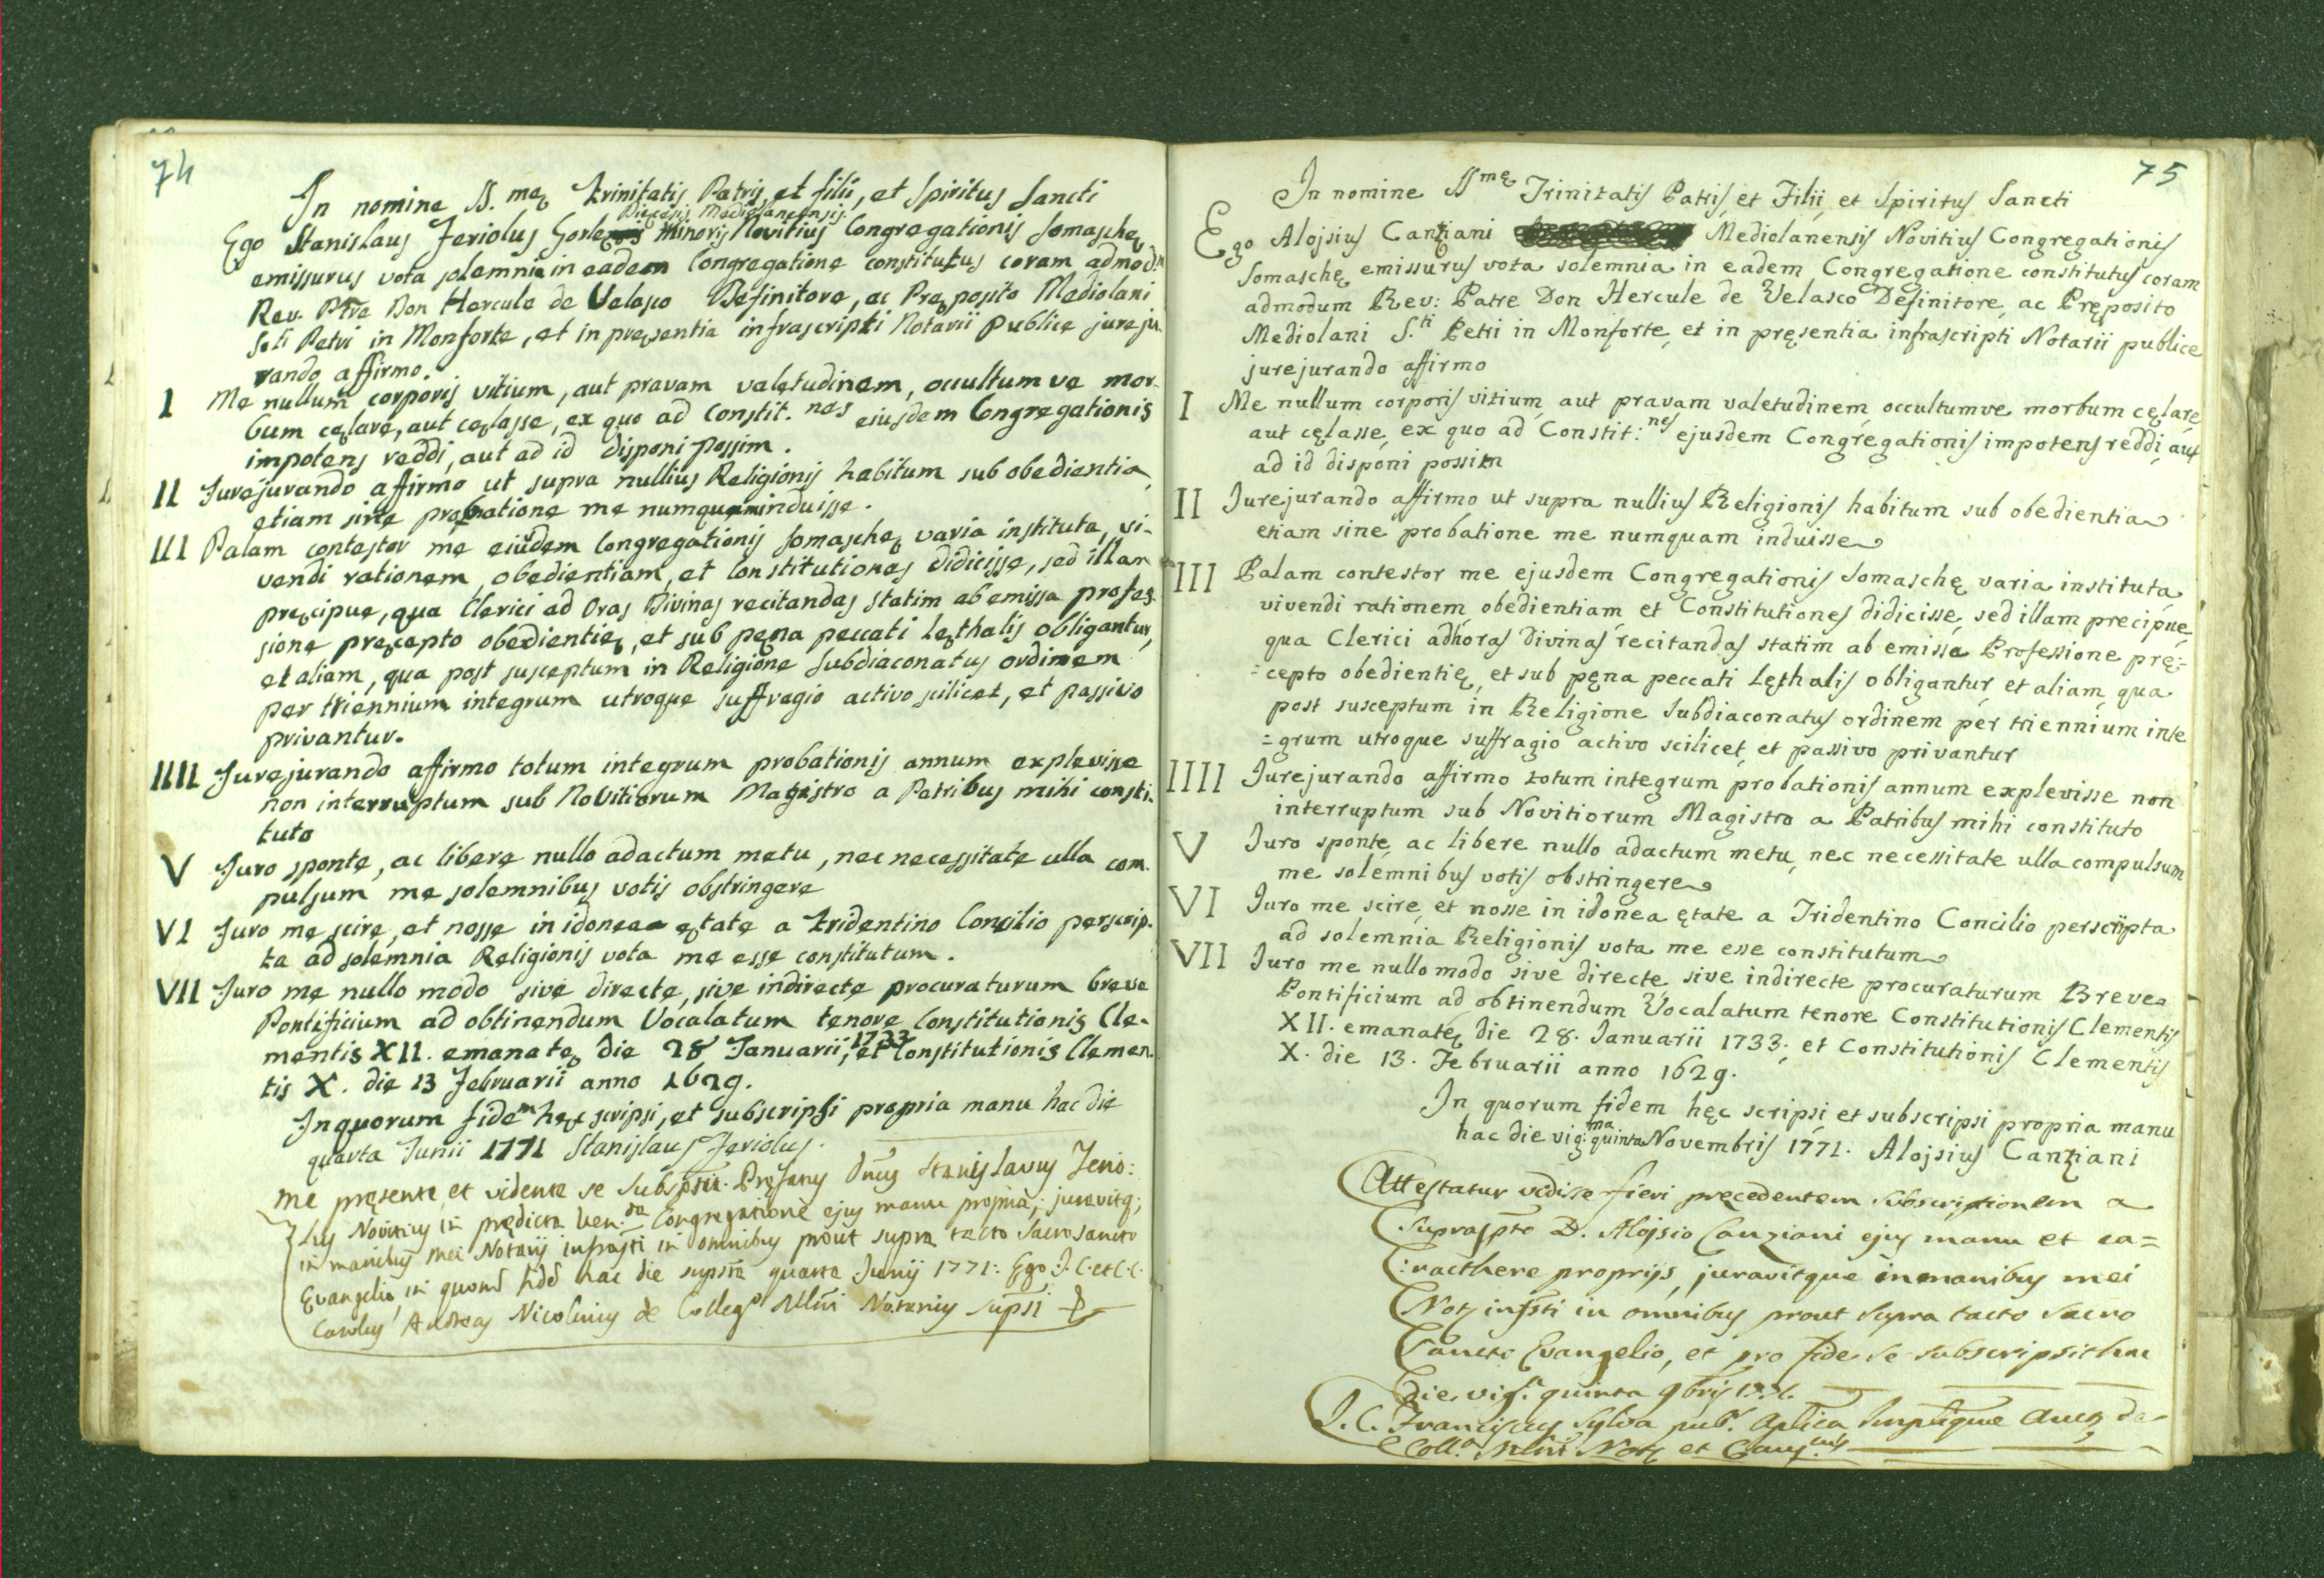 74
In nomine SS.mę Trinitatis Patris, et filii, et Spiritus Sancti
Diecesis Mediolanensis
Ego Stanislaus Feriolus Gorle Minoris Novitius Congregationis Somaschę
emissurus vota solemnia in eadem Congregatione constitutus coram admod.m
Rev. Ptre Don Hercule de Velasco Definitore, ac Pręposito Mediolani
S.ti Petri in Monforte, et in pręsentia infrascripti Notarii publice jureju-
rando affirmo.
I Me nullum corporis vitium, aut pravam valetudinem, occultum ve mor-
bum cęlare, aut cęlasse, ex quo ad Constit.nes eiusdem Congregationis
impotens reddi, aut ad id disponi possim.
II Jurejurando affirmo ut supra nullius Religionis habitum sub obedientia,
etiam sine probatione me numquam induisse.
III Palam contestor me eiusdem Congregationis Somaschę varia instituta, vi-
vendi rationem, obedientiam, et Constitutiones didicisse, sed illam
pręcipue, qua Clerici ad Oras Divinas recitandas statim ab emissa profes-
sione pręcepto obedientię, et sub pęna peccati lęthalis obligantur,
et aliam, qua post susceptum in Religione Subdiaconatus ordinem
per triennium integrum utroque suffragio activo scilicet, et passivo
privantur.
IIII Jurejurando affirmo totum integrum probationis annum explevisse
non interruptum sub Novitiorum Magistro a Patribus mihi consti-
tuto
V Juro sponte, ac libere nullo adactum metu, nec necessitate ulla com-
pulsum me solemnibus votis obstringere
VI Juro me scire, et nosse in idonea ętate a Tridentino Concilio perscrip-
ta ad solemnia Religionis vota me esse constitutum.
VII Juro me nullo modo sive directe, sive indirecte procuraturum breve
Pontificium ad obtinendum Vocalatum tenore Constitutionis Cle-
mentis XII. emanatę die 28 Januarii, 1733 et Constitutionis Clemen-
tis X. die 13 Februarii anno 1629.
In quorum fidem hęc scripsi, et subscripsi propria manu hac die
quarta Junii 1771 Stanislaus Feriolus.
Me pręsente, et vidente se subspsit Pręfatus Dnus Stanislaus Ferio:
lus Novitius in prędicta Ven.da Congregatione ejus manu propria; juravitq;
in manibus mei Notarij infrasti in omnibus prout supra tacto Sacrosancto
Evangelio, in quorum fidem hac die suprsta quarta Junij 1771: Ego J.C. et C.C.
Carolus Andreas Nicolinus de Colleg.o Mlni Notarius supsi
75
In nomine SSmę Trinitatis Patris, et Filii, et Spiritus Sancti
Ego Alojsius Canziani Mediolanensis Novitius Congregationis
Somaschę emissurus vota solemnia in eadem Congregatione constitutus coram
admodum Rev: Patre Don Hercule de Velasco Definitore, ac Pręposito
Mediolani S.ti Petri in Monforte, et in pręsentia infrascripti Notarii publice
jurejurando affirmo
I Me nullum corporis vitium, aut pravam valetudinem, occultumve morbum cęlare,
aut cęlasse, ex quo ad Constit:nes ejusdem Congregationis impotens reddi, aut
ad id disponi possim
II Jurejurando affirmo ut supra nullius Religionis habitum sub obedientia
etiam sine probatione me numquam induisse
III Palam contestor me ejusdem Congregationis Somaschę varia instituta,
vivendi rationem, obedientiam et Constitutiones didicisse, sed illam precipue,
qua Clerici adhoras divinas recitandas statim ab emissa Professione prę=
=cepto obedientię, et sub pęna peccati lęthalis obligantur, et aliam, qua
post susceptum in Religione Subdiaconatus ordinem per triennium inte
=grum utroque suffragio activo scilicet, et passivo privantur
IIII Jurejurando affirmo totum integrum probationis annum explevisse non
interruptum sub Novitiorum Magistro a Patribus mihi constituto
V Juro sponte, ac libere nullo adactum metu, nec necessitate ulla compulsum
me solemnibus votis obstringere
VI Juro me scire, et nosse in idonea ętate a Tridentino Concilio perscripta
ad solemnia Religionis vota me esse constitutum
VII Juro me nullo modo sive directe, sive indirecte procuraturum Breve
Pontificium ad obtinendum Vocalatum tenore Constitutionis Clementis
XII. emanatę die 28. Januarii 1733; et Constitutionis Clementis
X. die 13. Februarii anno 1629.
In quorum fidem hęc scripsi, et subscripsi propria manu
hac die vig:ma quinta Novembris 1771. Alojsius Canziani
Attestatur vidisse fieri precedentem subscriptionem a
supraspto D. Alojsio Canziani ejus manu et ca=
:racthere proprijs, juravitque in manibus mei
Notz infrsti in omnibus prout supra tacto Sacro
Sancto Evangelio, et pro fide se subscripsit hac
die vigs.a quinta 9bris 1771.
J.C. Franciscus Sylva pub.s Aplica Implique Auctz de
Coll.o Mlni Notz et Caus.cus